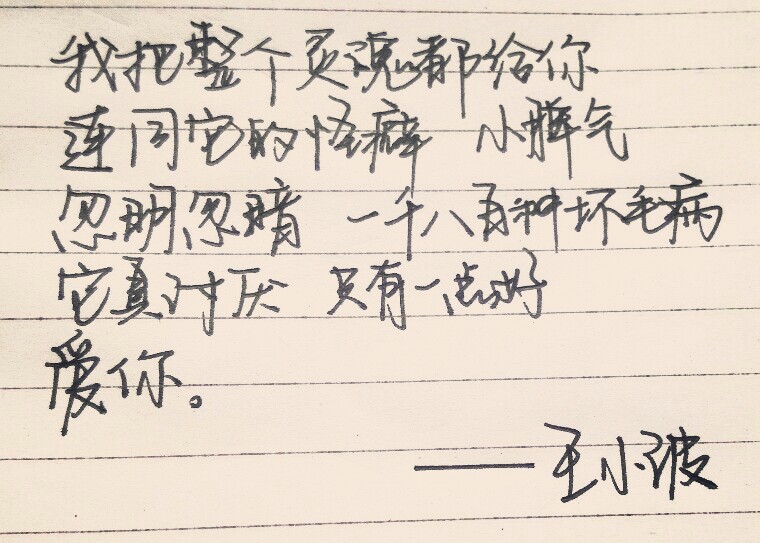 我把整个灵魂都给你
连同它的怪癖 小脾气
忽明忽暗 一千八百种坏毛病
它真讨厌 只有一点好
爱你。
——王小波